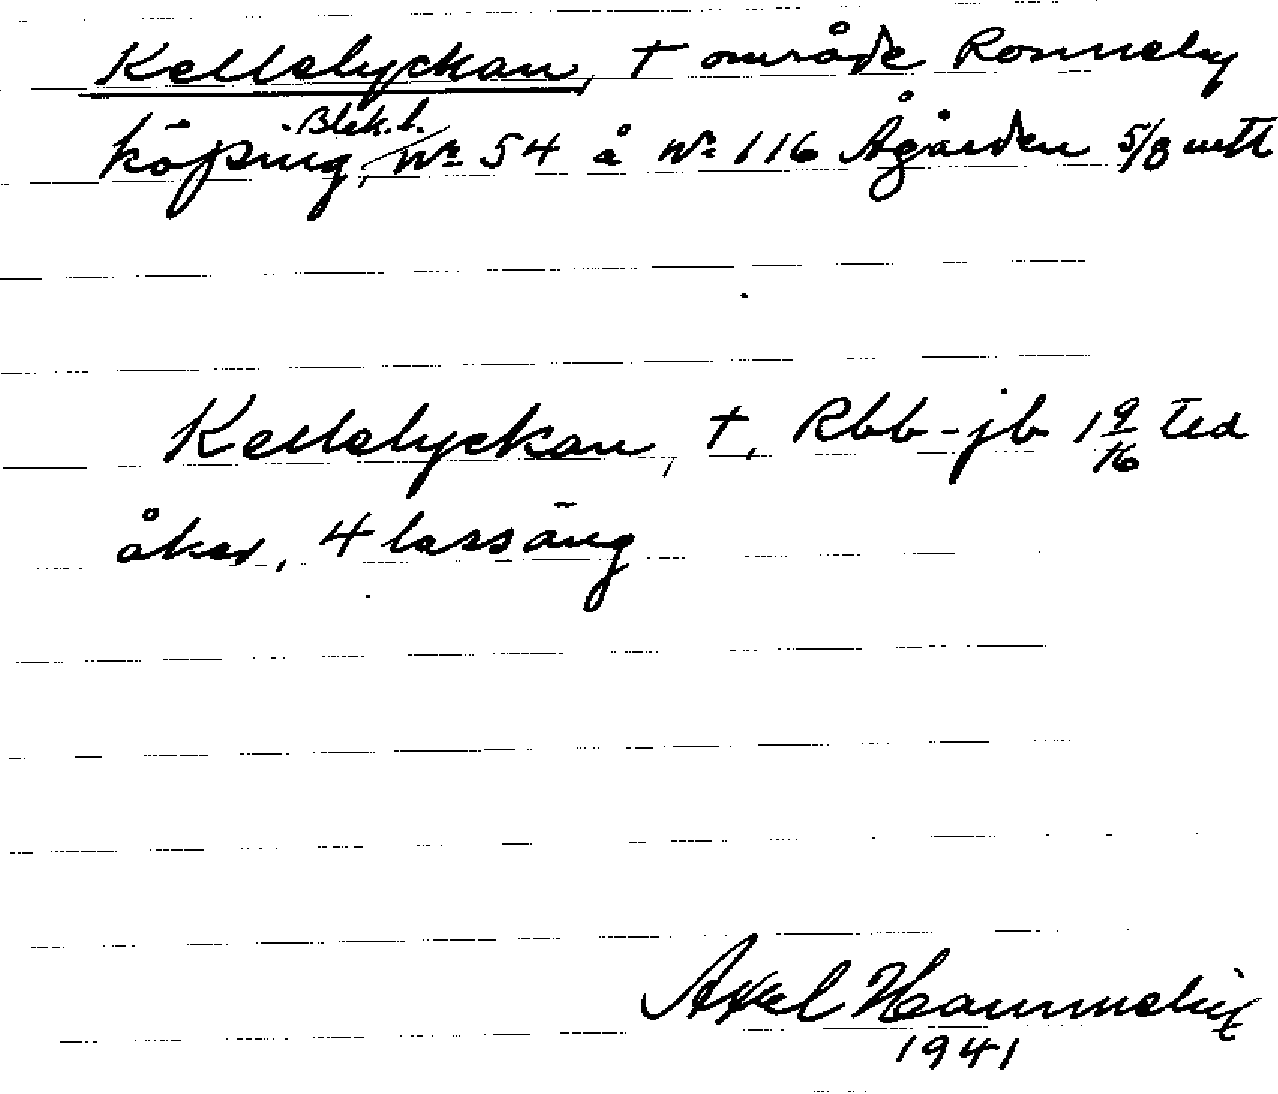 Kellelyckan, + område Ronneby
köping, Blek. l. Nr 54 å Nr 116 Ågården 5/8 mtl
Kellelyckan, +, Rbb-jb 1 9/16 tld
åker, 4 lass äng
Axel
1941